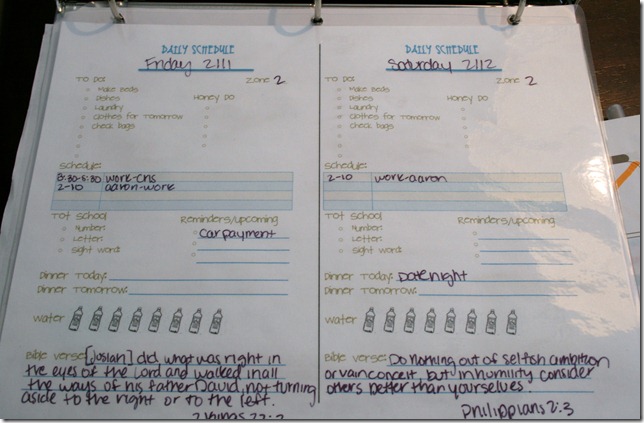 DAILY SCHEDULE
Friday 2/11
TO DO:
Zone 2
Make Beds
Dishes
Laundry
Clothes for Tomorrow
Check Bags
Honey Do
Schedule:
8:30-5:30 work-cns
2-10 aaron-work
Tot School
Number:
Letter:
Sight Word:
Reminders/upcoming
Car payment
Dinner Today:
Dinner Tomorrow:
Water
Bible verse: [Josiah] did what was right in
the eyes of the Lord and walked in all
the ways of his father David, not turning
aside to the right or to the left.
2 Kings 22:2
DAILY SCHEDULE
Saturday 2/12
TO DO:
Zone 2
Make Beds
Dishes
Laundry
Clothes for Tomorrow
Check Bags
Honey Do
Schedule:
2-10 work-aaron
Tot School
Number:
Letter:
Sight Word:
Reminders/upcoming
Dinner Today: Date night
Dinner Tomorrow:
Water
Bible verse: Do nothing out of selfish ambition
or vain conceit, but in humility consider
others better than yourselves.
Philippians 2:3